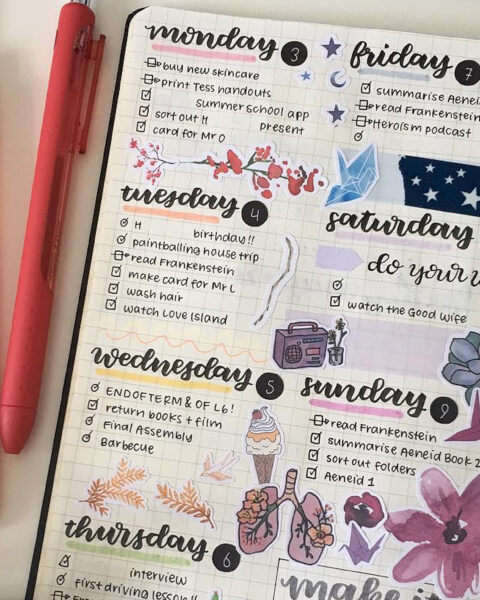 monday 3
buy new skincare
print Tess handouts
summer school app
sort out H present
card for Mr O
tuesday 4
H birthday!!
paintballing house trip
read Frankenstein
make card for Mr L
wash hair
watch Love Island
wednesday 5
END OF TERM & OF L6!
return books + film
Final Assembly
Barbecue
thursday 6
interview
first driving lesson!!
friday 7
summarise Aeneid
read Frankenstein
Heroism podcast
saturday
do your
watch the Good Wife
sunday 9
read Frankenstein
summarise Aeneid Book 2
sort out folders
Aeneid 1
make it